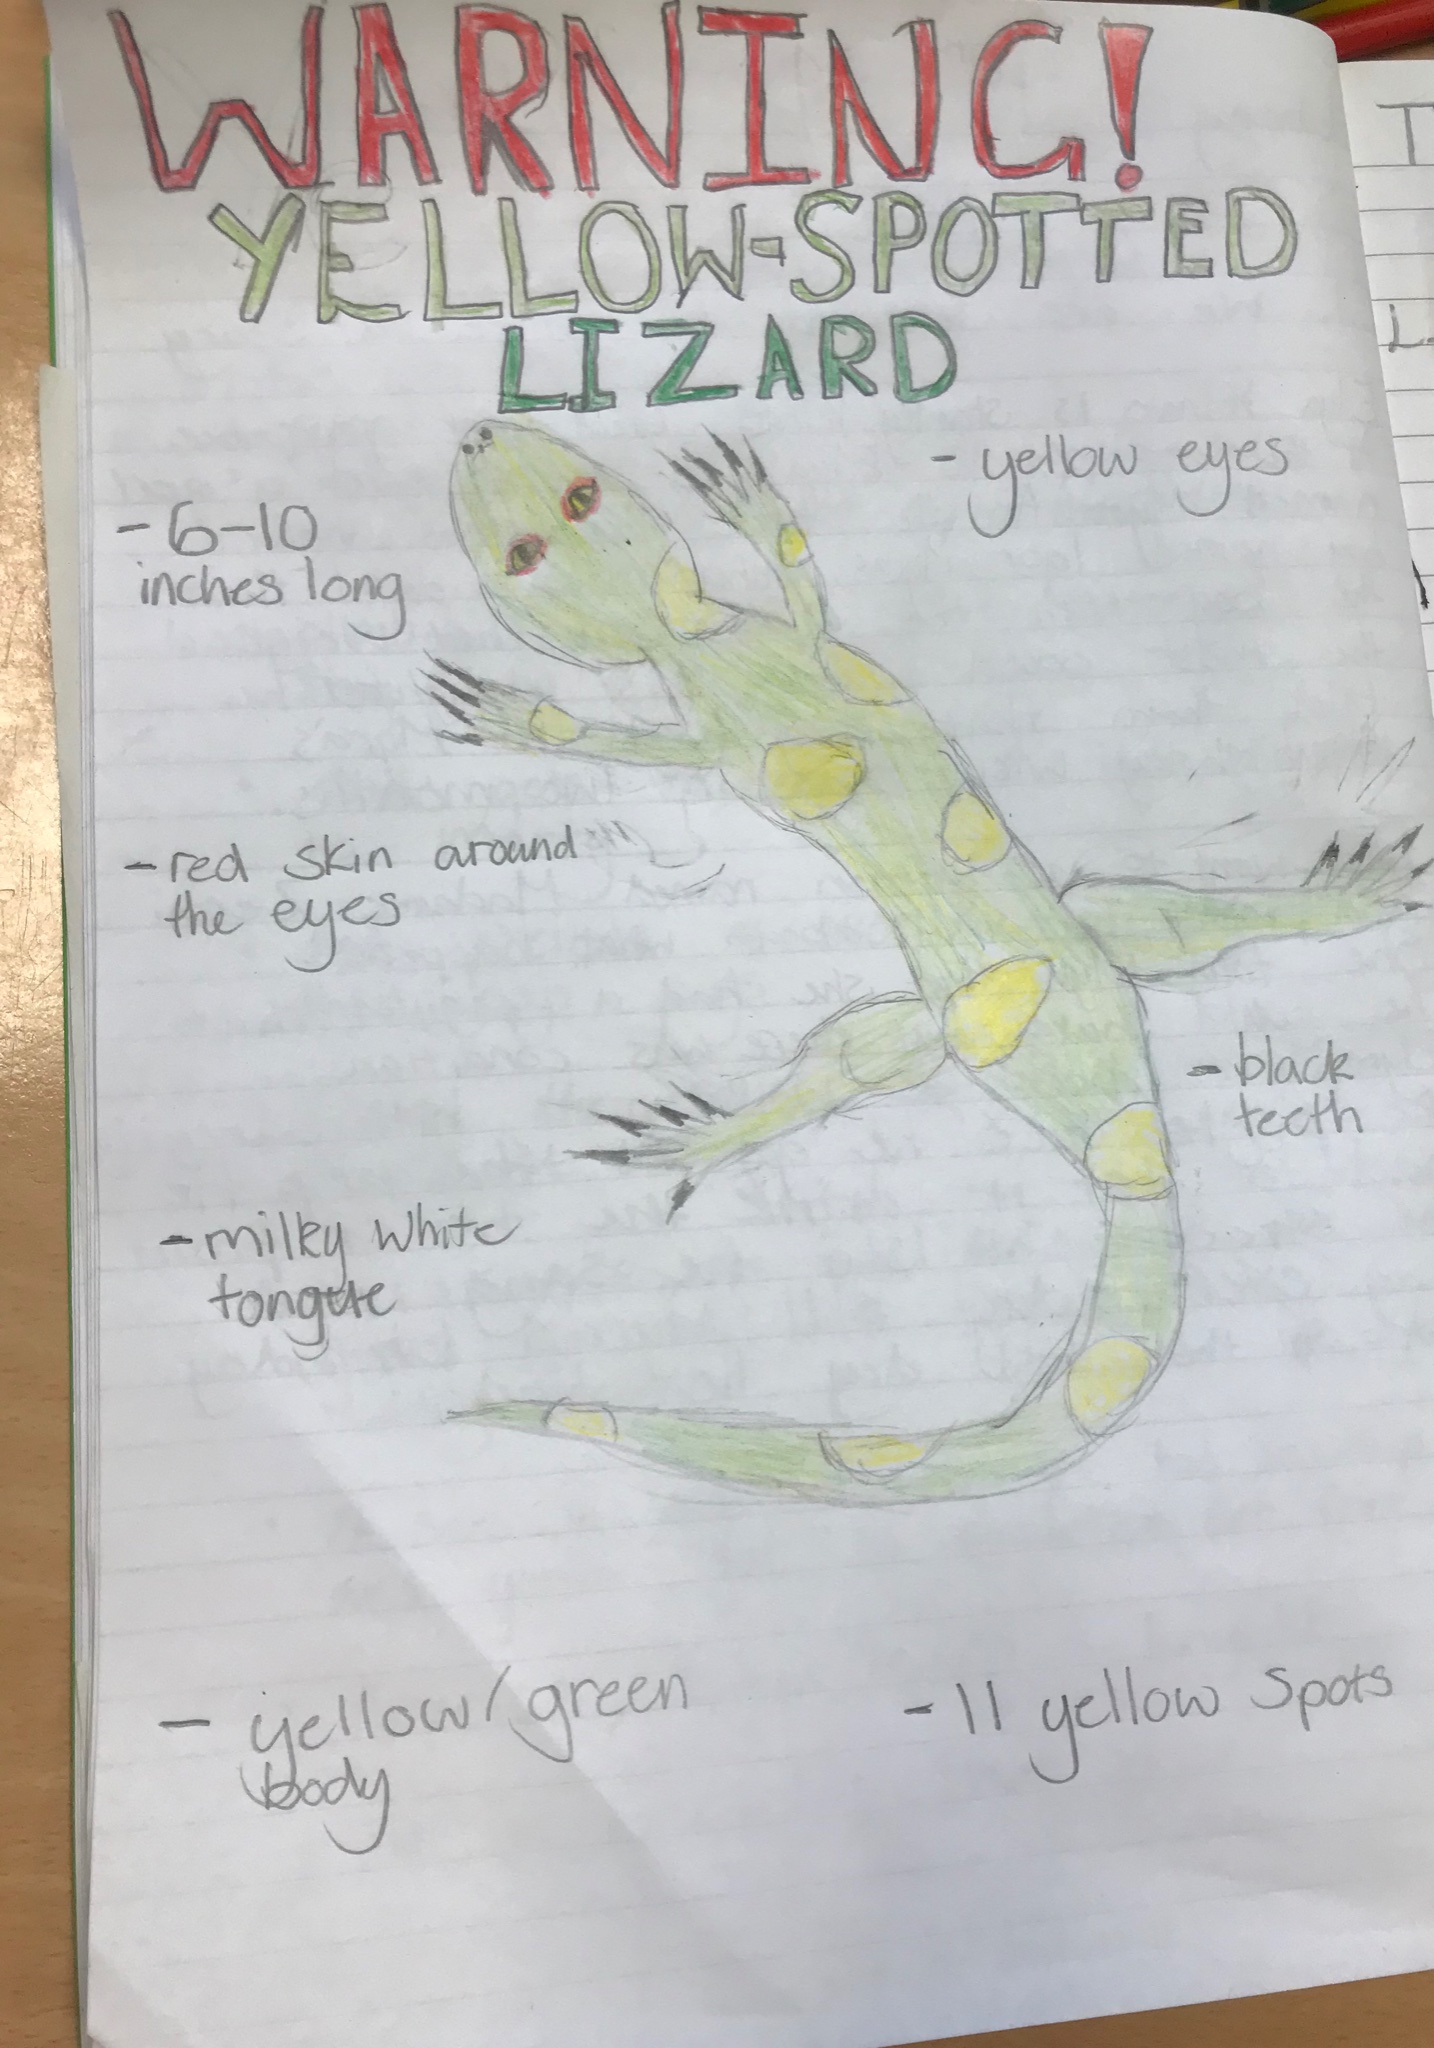 WARNING!
YELLOW-SPOTTED
LIZARD
- yellow eyes
- 6-10
inches long
- red skin around
the eyes
- black
teeth
- milky white
tongue
- yellow/green
body
- 11 yellow spots
T
L